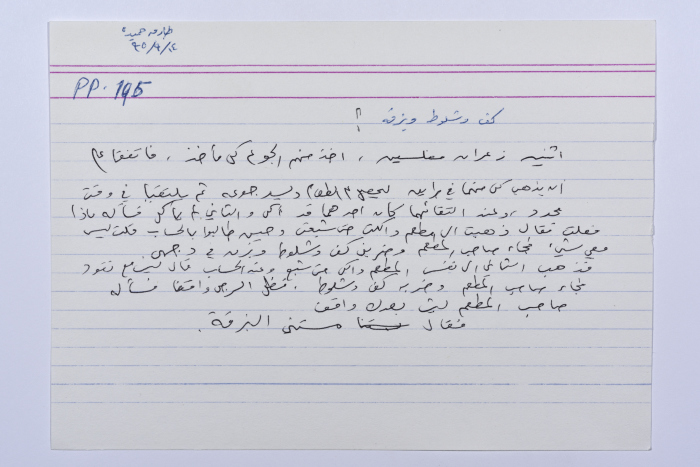 طارق حميدة
٩٥/٩/١٤
PP. 195
كف وشلوط وبزقة !
اثنين زعران مفلسين ، اخذ منهم الجوع كل مأخذ ، فاتفقا على
ان يذهب كل منهما في لطعام ويسد جوعه ثم يلتقيا في وقت
محدد ، وعند التقائهما كان احدهما قد أكل والثاني لم يأكل فسأله ماذا
فعلت فقال ذهبت الى مطعم واكلت حتى شبعت وحين طالبوا بالحساب قلت ليس
معي شيء فجاء صاحب المطعم وضربني كف وشلوط وبزق في وجهي .
فذهب الثاني الى نفس المطعم واكل حتى شبع وعند الحساب قال ليس مع نقود
فجاء صاحب المطعم وضربه كف وشلوط ، فظل الرجل واقفا فسأله
صاحب المطعم ليش بعدك واقف
فقال مستني البزقة .